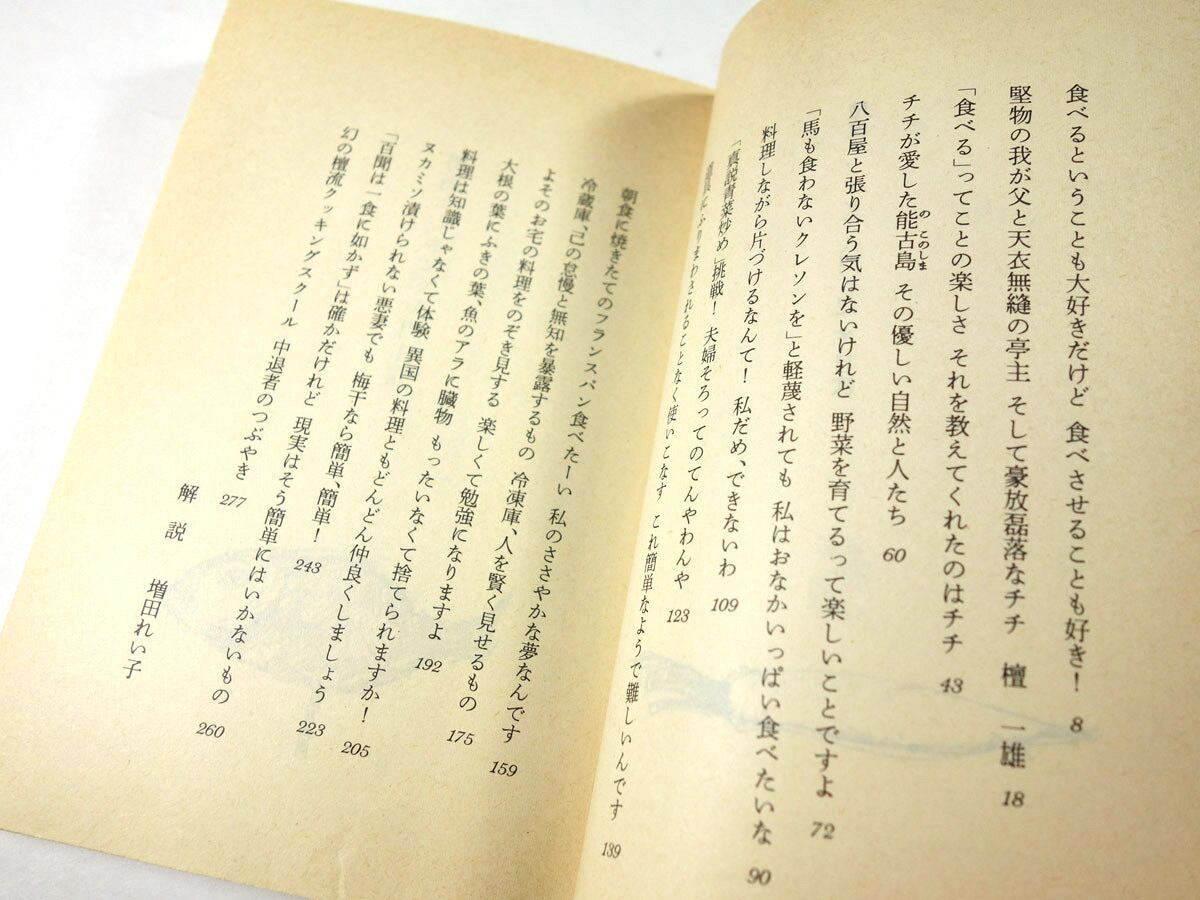 食べるということも大好きだけど 食べさせることも好き! 8
堅物の我が父と天衣無縫の亭主 そして豪放磊落なチチ 檀 一雄 18
「食べる」ってことの楽しさ それを教えてくれたのはチチ 43
チチが愛した能古島 その優しい自然と人たち 60
のこのしま
八百屋と張り合う気はないけれど 野菜を育てるって楽しいことですよ 72
「馬も食わないクレソンを」と軽蔑されても 私はおなかいっぱい食べたいな 90
料理しながら片づけるなんて! 私だめ、できないわ 109
「真説青菜炒め」挑戦! 夫婦そろってのてんやわんや 123
道具にふりまわされることなく使いこなす これ簡単なようで難しいんです 139
朝食に焼きたてのフランスパン食べたーい 私のささやかな夢なんです 159
冷蔵庫、己の怠慢と無知を暴露するもの 冷凍庫、人を賢く見せるもの 175
よそのお宅の料理をのぞき見する 楽しくて勉強になりますよ 192
大根の葉にふきの葉、魚のアラに臓物 もったいなくて捨てられますか! 205
料理は知識じゃなくて体験 異国の料理ともどんどん仲良くしましょう 223
ヌカミソ漬けられない悪妻でも 梅干なら簡単、簡単! 243
「百聞は一食に如かず」は確かだけれど 現実はそう簡単にはいかないもの 260
幻の檀流クッキングスクール 中退者のつぶやき 277
解説 増田れい子